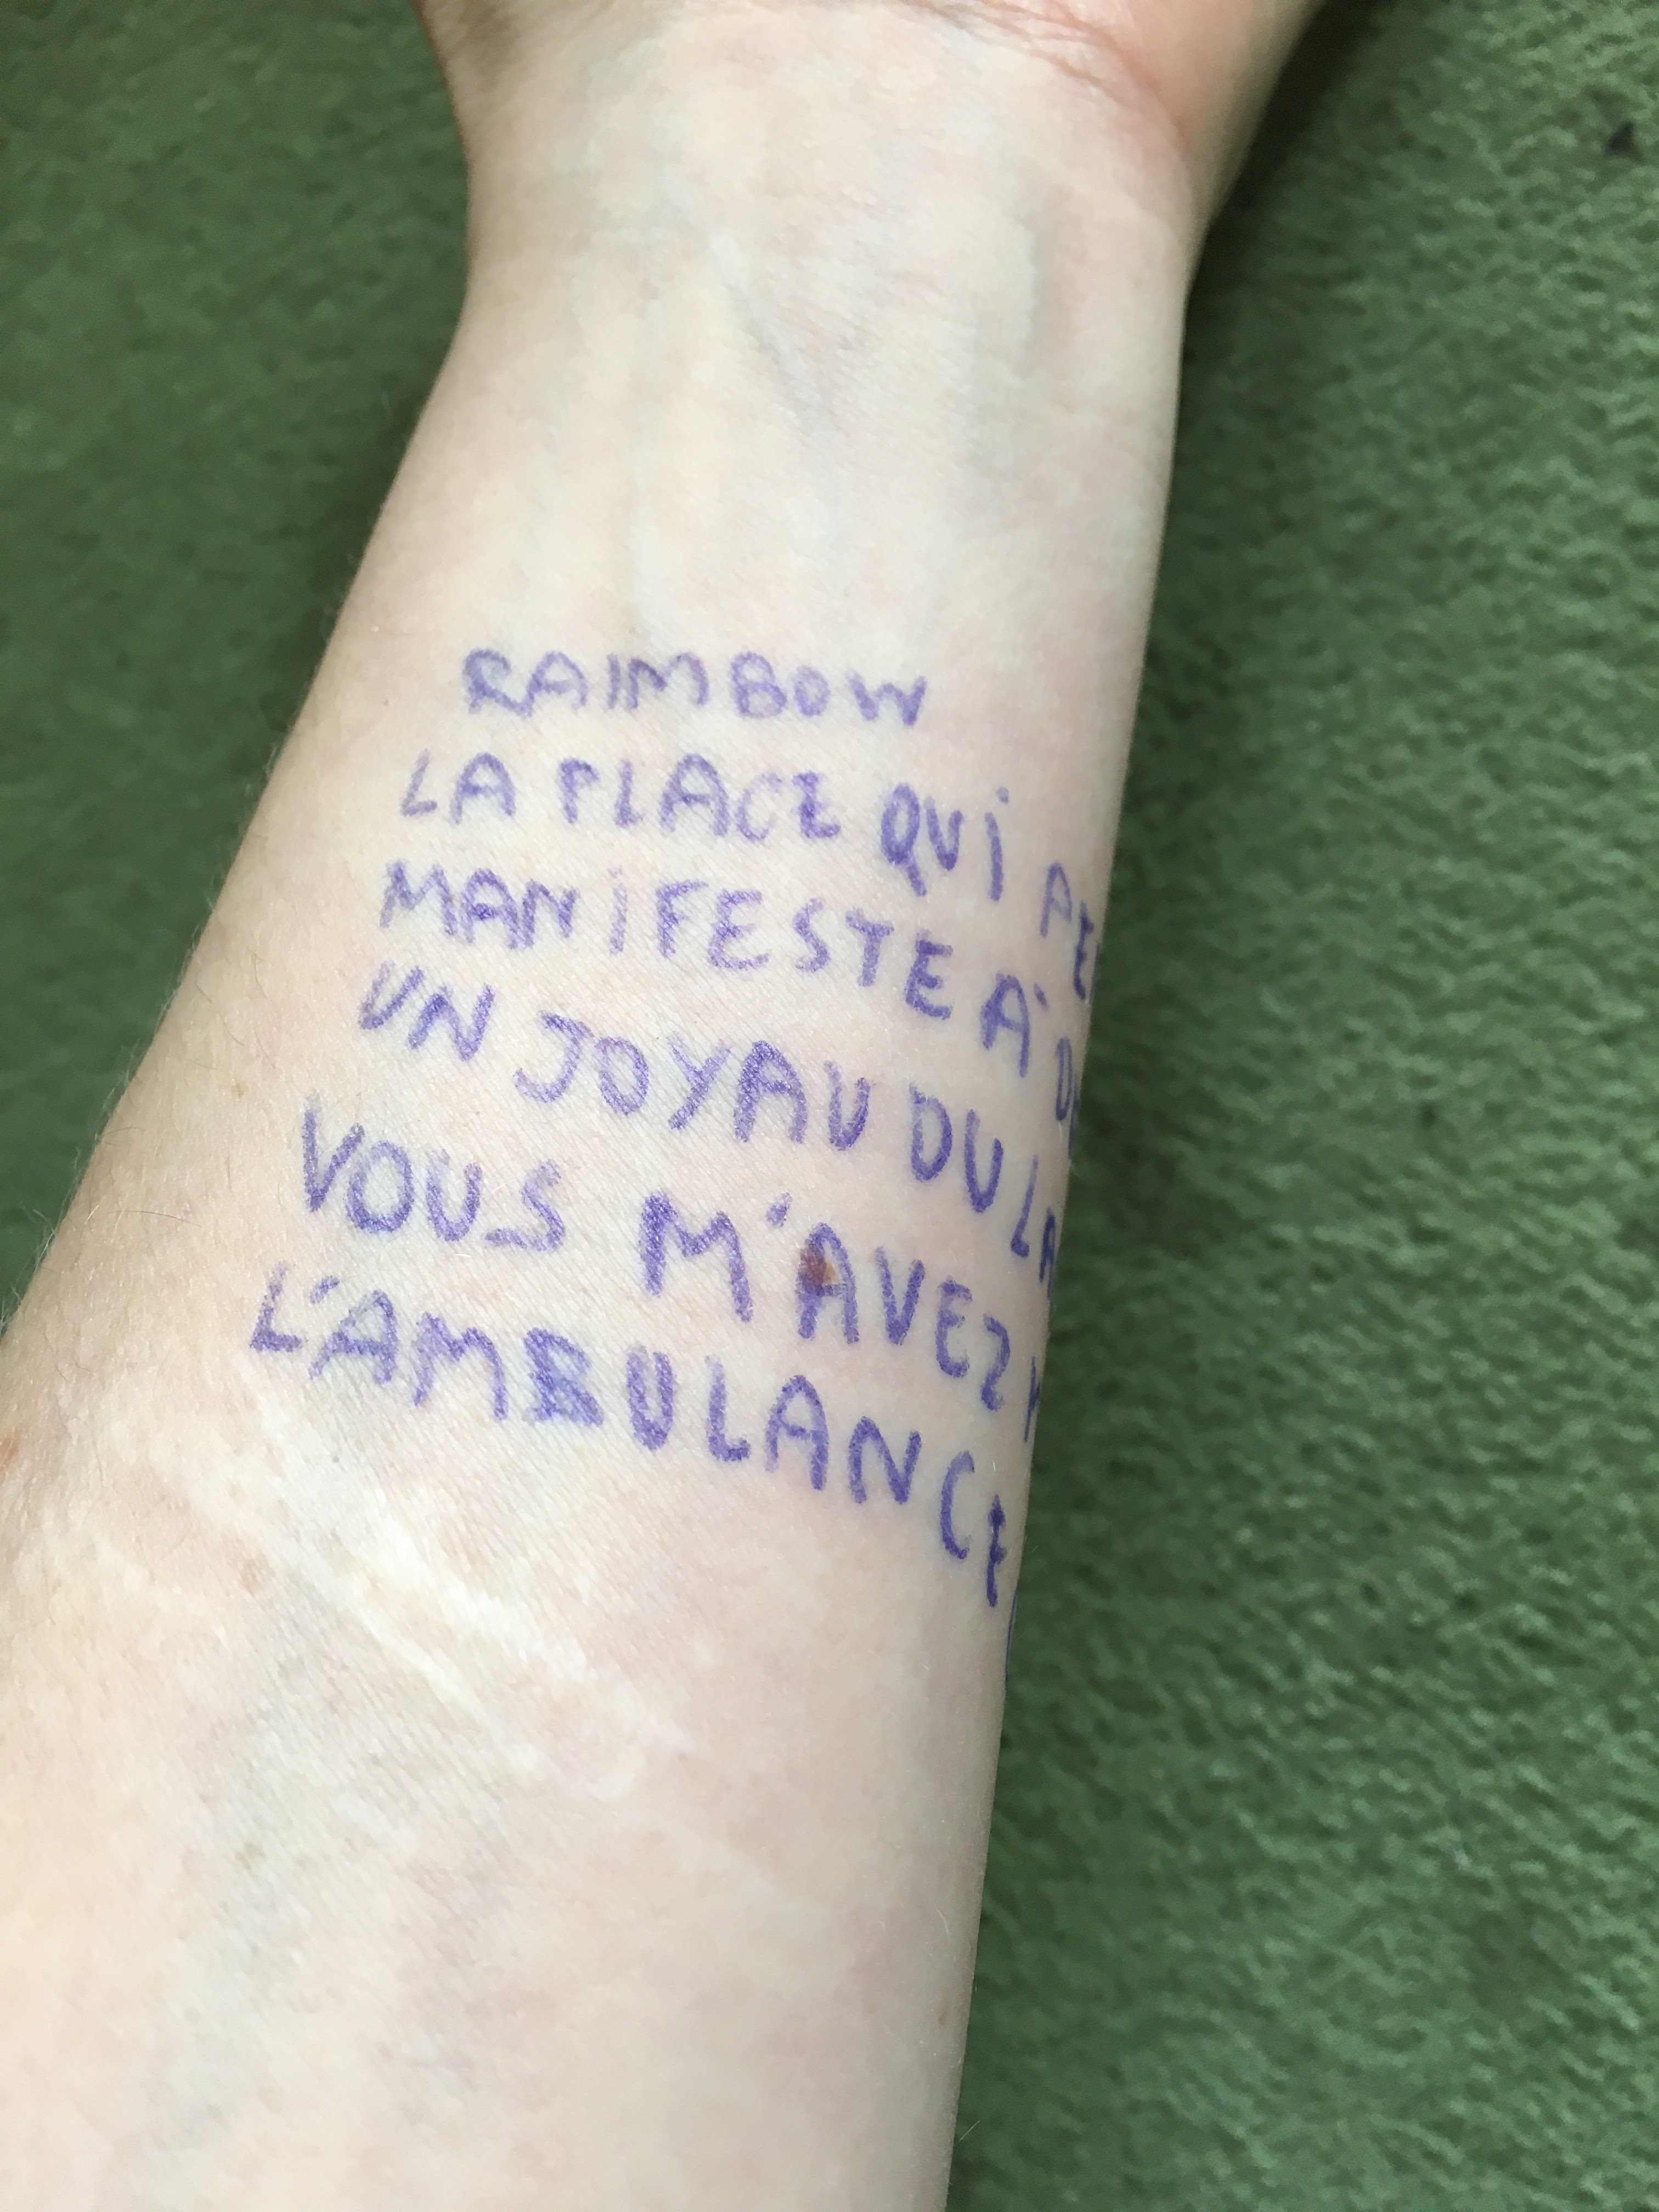 RAIMBOW
LA PLACE QUI
MANIFESTE À
UN JOYAU DU
VOUS M'AVEZ
L'AMBULANCE